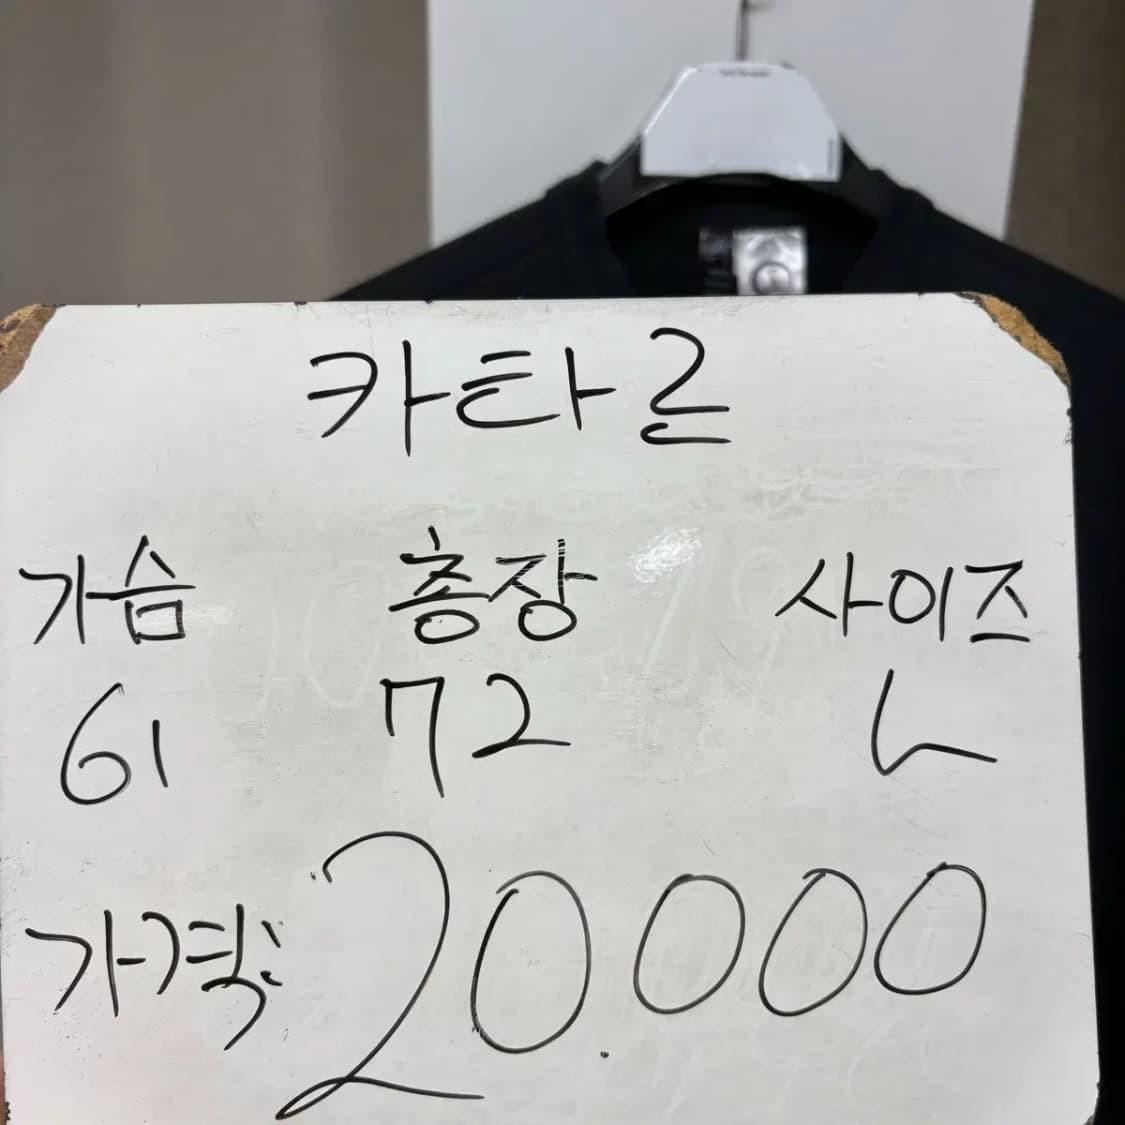 카타르
가슴 총장 사이즈
61 72 L
가격: 20.000